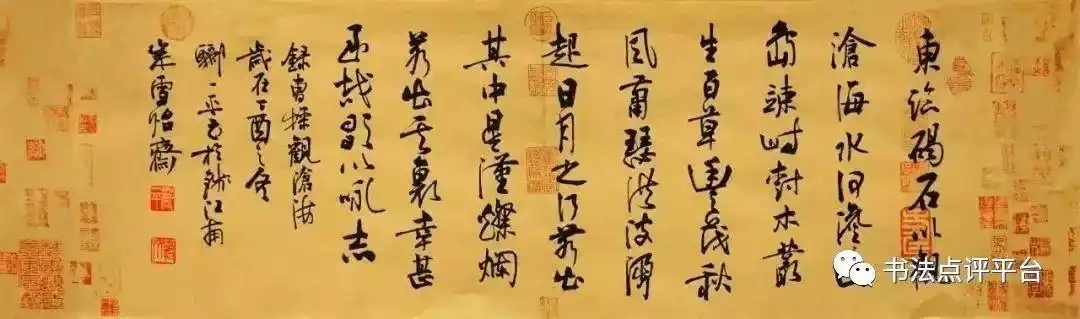 東臨碣石以觀
滄海水何澹〻山
島竦峙樹木叢
生百草豐茂秋
風蕭瑟洪波涌
起日月之行若出
其中星漢燦爛
若出其裏幸甚
至哉歌以咏志
録曹操觀滄海
歲在丁酉之冬
一平書於錢江南
岸雪怡齋
书法点评平台